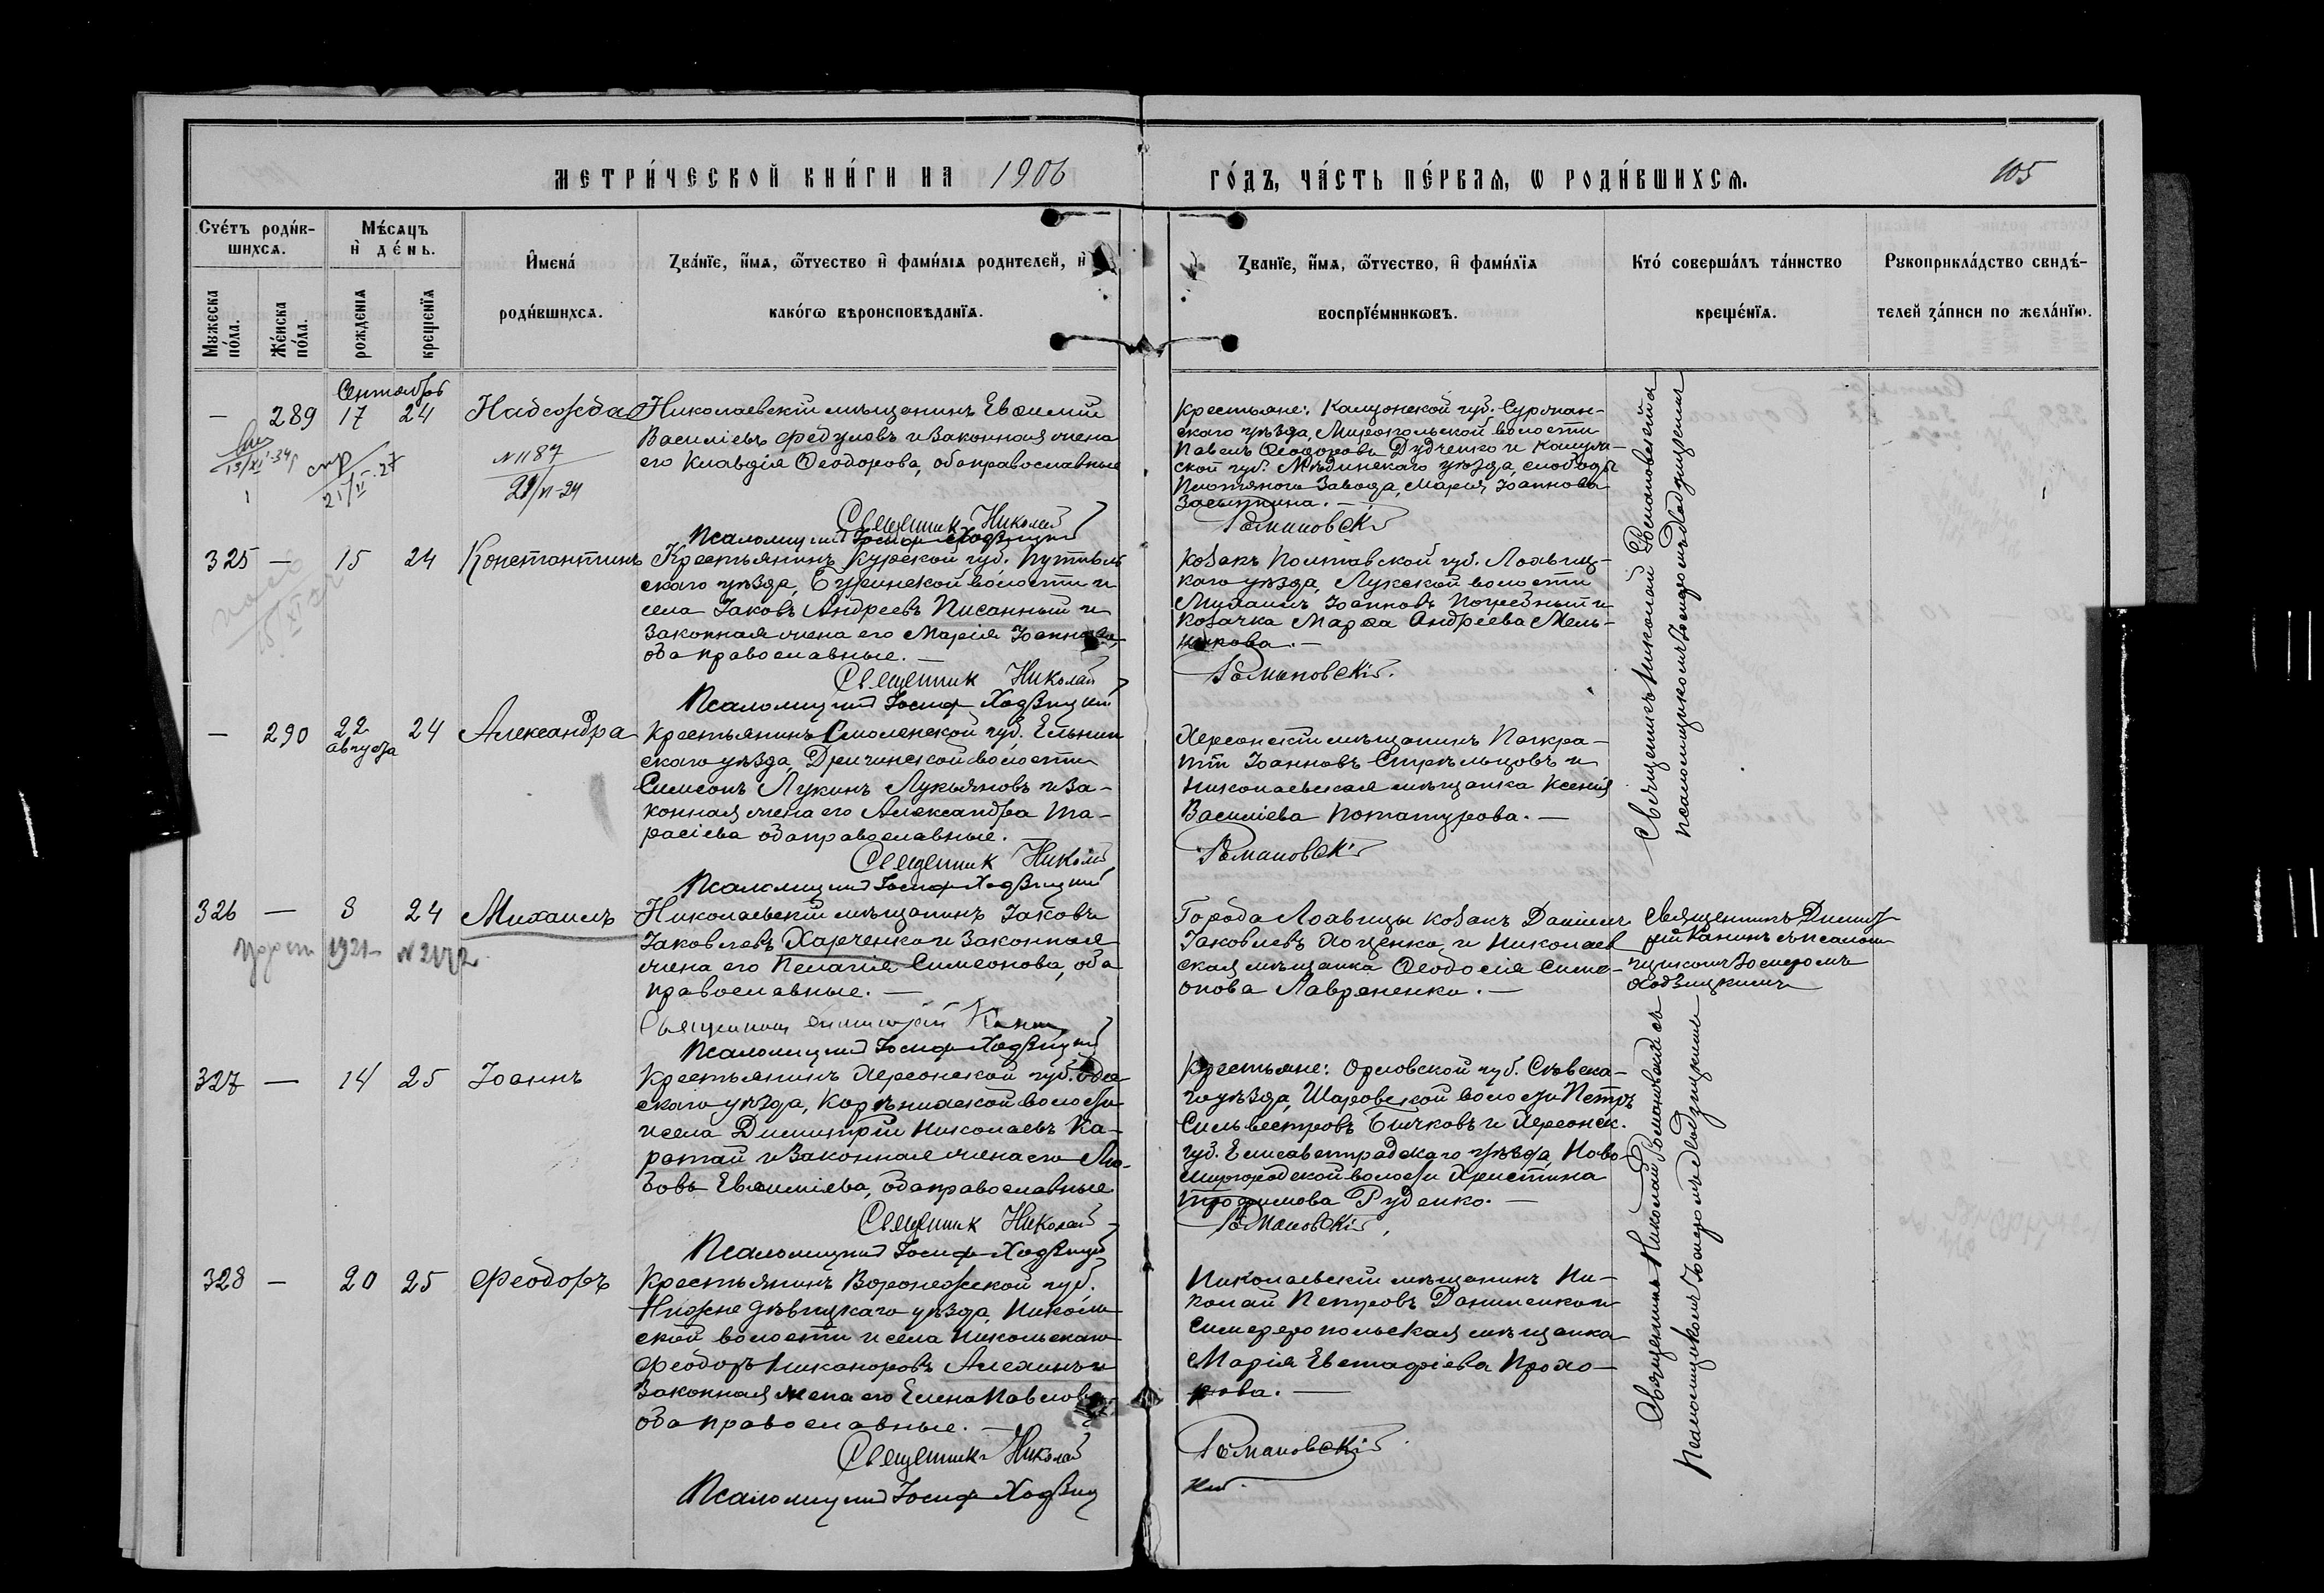 МЕТРИ́ЧЕСКОЙ КНИ́ГИ НА 1906
ГО́ДЪ, ЧА́СТЬ ПЕ́РВАѦ, Ѡ РОДИ́ВШИХСѦ.
105
Сче́тъ роди́в-
шихсѧ.
Мѣ́сѧцъ
и҆ де́нь.
Мꙋжеска по́ла.
Же́нска по́ла.
рожденїѧ
крещенїѧ
И҆мена́
роди́вшихсѧ.
Зва́нїе, и҆́мѧ, ѻ҆́тчество и҆ фами́лїѧ родителей, и҆
како́гѡ вѣроисповѣданїѧ.
Званїе, и҆́мѧ, ѻ҆́тчество, и҆ фами́лїѧ
воспрїе́мникѡвъ.
Кто́ соверша́лъ та́инство
креще́нїѧ.
Рꙋкоприкла́дство свидѣ́-
телей за́писи по жела́нїю.
Сентябрь
— 289 17 24 Надежда
Николаевскій мѣщанинъ Евѳимій
Василіевъ Федуловъ и законная жена
его Клавдія Ѳеодорова, оба православные
№ 1187
21/VI-24
21/II-27
Священник Николай
Псаломщикъ Іосиф Ходзицкий
Крестьяне:
скаго уѣзда, Миропольской волости
Павелъ Ѳеодоровъ Дудченко и Калуж-
ской губ. Мѣдынскаго уѣзда, слободы
Полотняного Завода, Марія Іоаннова
Засыпкина. —
Романовскій
325 — 15 24 Константинъ
Крестьянинъ Курской губ. Путивль
скаго уѣзда, Буринской волости и
села Іаковъ Андреевъ Писанный и
законная жена его Марія Іоаннова,
оба православные. —
Священник Николай
Псаломщикъ Іосиф Ходзицкий
Козакъ Полтавской губ. Лохвиц-
каго уѣзда, Лукской волости
Михаилъ Іоанновъ Погребный и
козачка Марѳа Андреева Мель-
никова. —
Романовскій.
— 290 22 августа 24 Александра
Крестьянинъ Смоленской губ. Ельнин
скаго уѣзда, волости
Симеонъ Лукинъ Лукьяновъ и за-
конная жена его Александра Та-
расіева оба православные. —
Священник Николай
Псаломщикъ Іосиф Ходзицкий
Херсонскій мѣщанинъ Панкра-
тій Іоанновъ Стрѣльцовъ и
Николаевская мѣщанка Ксенія
Василіева Потатурова. —
Романовскій
Священникъ Николай Романовскій съ
псаломщикомъ Іосифомъ Ходзицкимъ
326 — 8 24 Михаилъ
1921 №
Николаевскій мѣщанинъ Іаковъ
Іаковлевъ Харченко и законная
жена его Пелагія Симеонова, оба
православные. —
Священник Димитрій Канин
Псаломщикъ Іосиф Ходзицкий
Города Лохвицы козакъ Даніилъ
Іаковлевъ Хоценко и Николаев
ская мѣщанка Ѳеодосія Симе-
онова Лавриненко. —
Священникъ Димит-
рій Канинъ съ псалом-
щикомъ Іосифомъ
Ходзицкимъ
327 — 14 25 Іоаннъ
Крестьянинъ Херсонской губ. Одес
скаго уѣзда, волости
и села Димитрій Николаевъ Ка-
ратай и законная жена его Лю-
бовь Евѳиміева, оба православные.
Священник Николай
Псаломщикъ Іосиф Ходзицкий
Крестьяне: Орловской губ. Сѣвска-
го уѣзда, Шаровской волости Петръ
Сильвестровъ Бычковъ и Херсонск.
губ. Елисаветградскаго уѣзда, Ново-
миргородской волости Христина
Трофимова Руденко. —
Романовскій
328 — 20 25 Феодоръ
Крестьянинъ Воронежской губ.
Нижнедѣвицкаго уѣзда, Николь
ской волости и села Никольскаго
Феодоръ Никаноровъ Алехинъ и
законная жена его Елена Павлова
оба православные. —
Священник Николай
Псаломщикъ Іосиф Ходзиц
Николаевскій мѣщанинъ Ни-
колай Петровъ Даниленко и
Симферопольская мѣщанка
Марія Евстафіева Прохо-
рова. —
Романовскій
кий.
Священникъ Николай Романовскій съ
псаломщикомъ Іосифомъ Ходзицкимъ